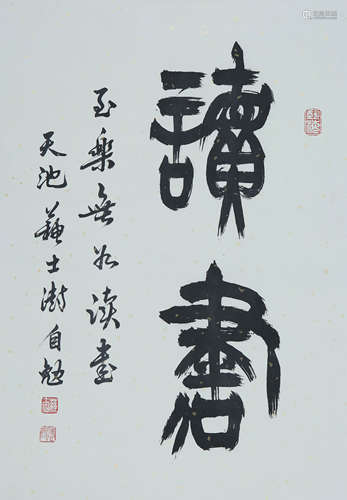 讀書
至樂無如读書
天池蘇士澍自勉